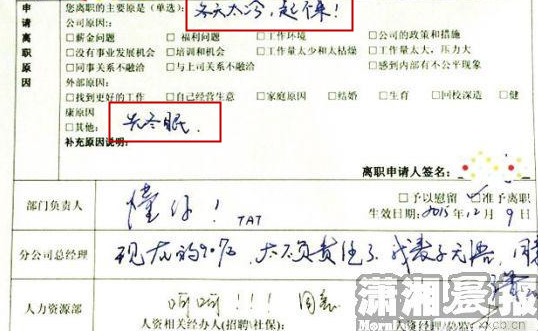 申请离职原因
您离职的主要原是(单选): 冬天太冷,起不来!
公司原因:
□薪金问题 □福利问题 □工作环境 □公司的政策和措施
□没有事业发展机会 □培训和机会 □工作量太少和太枯燥 □工作量太大,压力大
□同事关系不融洽 □与上司关系不融洽 □感到内部有不公平现象
外部原因:
□找到更好的工作 □自己经营生意 □家庭原因 □结婚 □生育 □回校深造 □健
康原因
□其他: 先冬眠.
补充原因说明:
离职申请人签名:
部门负责人 懂你! TAT
□予以慰留 □准予离职
生效日期: 2015年12月9日
分公司总经理 现在的90后,太不负责任了,我表示无语,同意
人力资源部 呵呵!!! 同意
人资相关经办人(招聘\社保):
人资经理/总监:
潇湘晨报